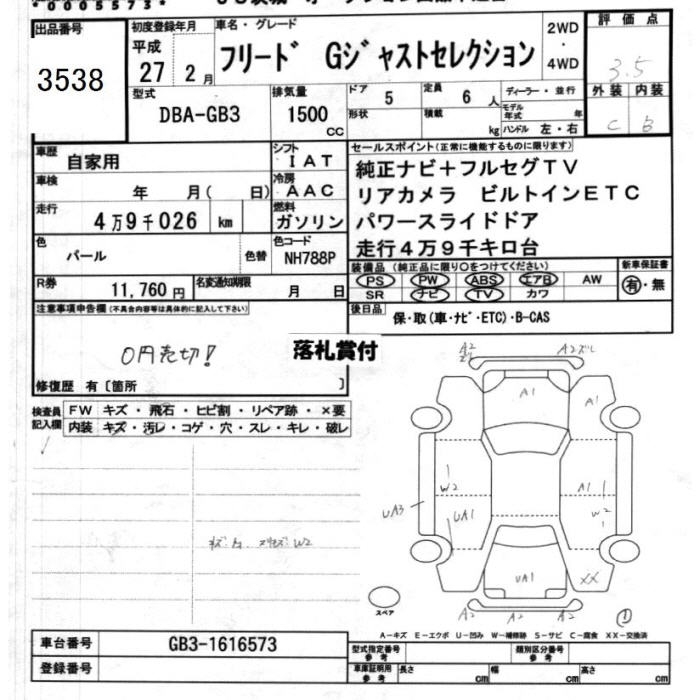 *0005573*
出品番号
3538
初度登録年月
平成
27 2月
車名・グレード
フリード Gジャストセレクション
2WD
・
4WD
評価点
3.5
外装 内装
C B
型式
DBA-GB3
排気量
1500
CC
ドア
5
形状
定員
6人
積載
kg
ディーラー・並行
モデル年式 年
ハンドル 左・右
車歴
自家用
シフト
IAT
車検
年 月( 日)
冷房
AAC
走行
4万9千026 km
燃料
ガソリン
色
パール
色替
色コード
NH788P
R券
11,760円
名変通知期限
月 日
セールスポイント(正常に機能するものに限ります)
純正ナビ+フルセグTV
リアカメラ ビルトインETC
パワースライドドア
走行4万9千キロ台
装備品(純正品に限り○をつけてください)
PS PW ABS エアB AW
SR ナビ TV カワ
新車保証書
有・無
後日品
保・取(車・ナビ・ETC)・B-CAS
注意事項申告欄(不具合内容等は具体的に記入して下さい)
0円売切!
落札賞付
修復歴 有〔箇所 〕
検査員記入欄
FW キズ・飛石・ヒビ割・リペア跡・×要
内装 キズ・汚レ・コゲ・穴・スレ・キレ・破レ
A2
A2ズレ
A1
A1
W2
A1
W2
UA3
UA1
UA1
XX
A2
A2
スペア
①
A-キズ E-エクボ U-凹み W-補修跡 S-サビ C-腐食 XX-交換済
車台番号
GB3-1616573
登録番号
型式指定番号
参考
類別区分番号
参考
車庫証明用
参考
長さ cm
幅 cm
高さ cm